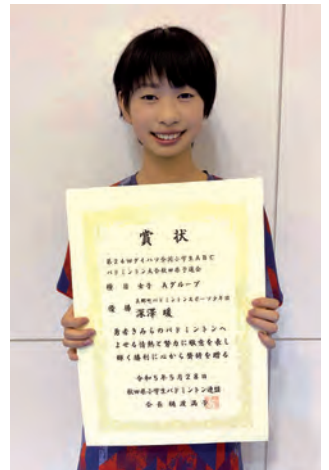 賞状
第24回ダイハツ全国小学生ABC
バドミントン大会秋田県予選会
種目 女子 Aグループ
美郷町バドミントンスポーツ少年団
優勝 深澤 暖
勇者きみらのバドミントンへ
よせる情熱と努力に敬意を表し
輝く勝利に心から賛辞を贈る
令和5年5月28日
秋田県小学生バドミントン連盟
会長